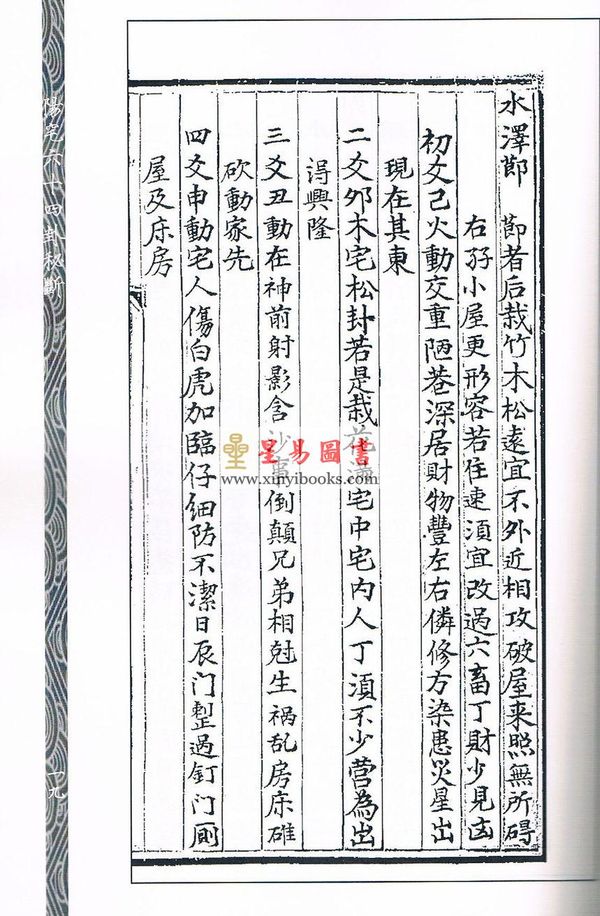 水澤節　節者后栽竹木松遠宜不外近相攻破屋来照無所碍
右孖小屋更形容若住速須宜改過六畜丁財少見凶
初爻己火動交重陋巷深居財物豐左右憐修方染患災星出
現在其東
二爻夘木宅松封若是栽花 宅中宅內人丁須不少营為出
得興隆
三爻丑動在神前射影含沙 倒顛兄弟相尅生禍乱房床碓
砍動家先
四爻申動宅人傷白虎加臨仔細防不潔日辰门整過釘门厠
屋及床房
星易圖書
www.xinyibooks.com
陽宅六十四卦秘斷
一九